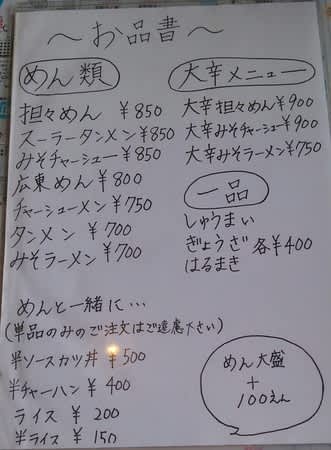 〜お品書〜
めん類
担々めん ¥850
スーラータンメン ¥850
みそチャーシュー ¥850
広東めん ¥800
チャーシューメン ¥750
タンメン ¥700
みそラーメン ¥700
大辛メニュー
大辛担々めん ¥900
大辛みそチャーシュー ¥900
大辛みそラーメン ¥750
一品
しゅうまい
ぎょうざ 各¥400
はるまき
めんと一緒に…
(単品のみのご注文はご遠慮下さい)
半ソースカツ丼 ¥500
半チャーハン ¥400
ライス ¥200
半ライス ¥150
めん大盛
+
100えん